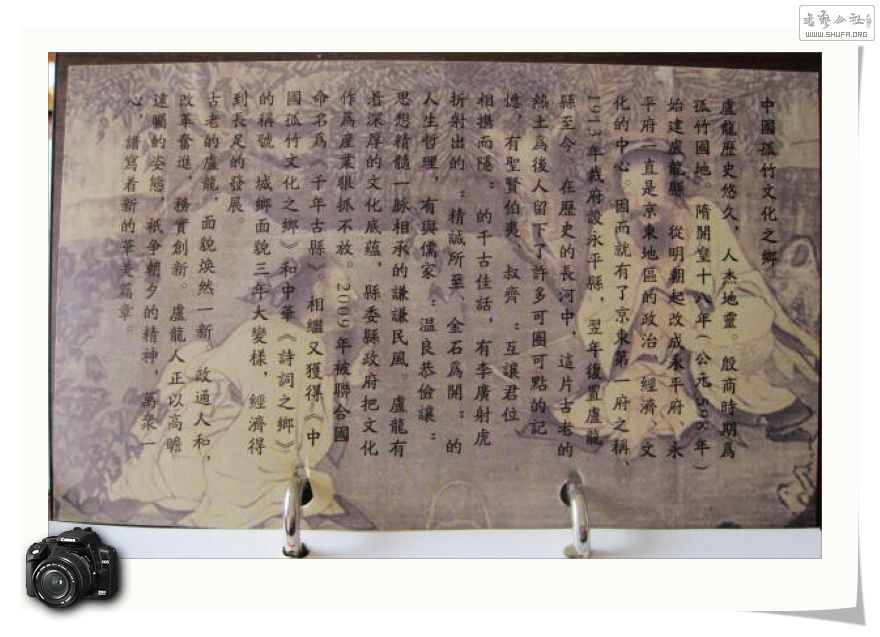 中國孤竹文化之鄉
盧龍歷史悠久，人杰地靈。殷商時期爲
孤竹國地。隋開皇十八年(公元598年)
始建盧龍縣，從明朝起改成永平府、永
平府一直是京東地區的政治、經濟、文
化的中心。因而就有了京東第一府之稱、
1913年裁府設永平縣，翌年復置盧龍
縣至今，在歷史的長河中，這片古老的
熱土爲後人留下了許多可圈可點的記
憶，有聖賢伯夷、叔齊“互讓君位，
相攜而隱”的千古佳話，有李廣射虎
折射出的“精誠所至、金石爲開”的
人生哲理，有與儒家“温良恭儉讓”
思想精髓一脉相承的謙謙民風。盧龍有
着深厚的文化底蘊，縣委縣政府把文化
作爲産業狠抓不放。2009年被聯合國
命名爲《千年古縣》，相繼又獲得《中
國孤竹文化之鄉》和中華《詩詞之鄉》
的稱號，城鄉面貌三年大變樣，經濟得
到長足的發展。
古老的盧龍，面貌焕然一新，政通人和，
改革奮進，務實創新。盧龍人正以高瞻
遠矚的姿態，祇争朝夕的精神，萬衆一
心，譜寫着新的華美篇章。
WWW.SHUFA.ORG
Canon
EOS